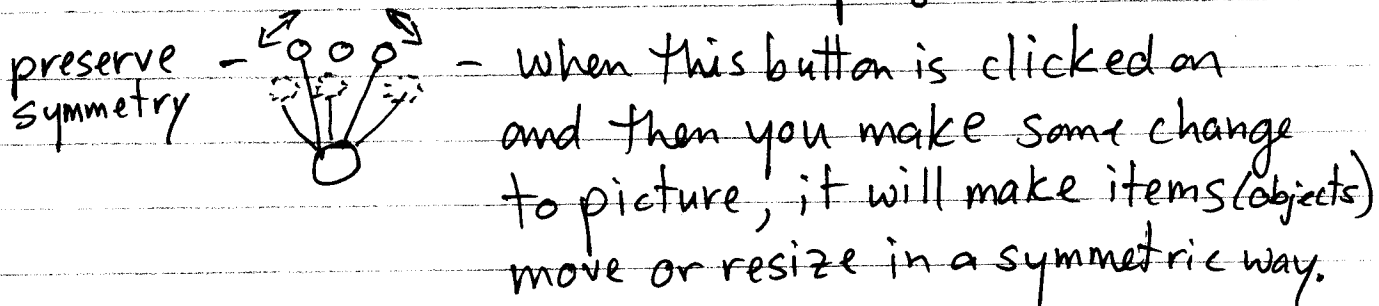 preserve - - when this button is clicked on
symmetry
and then you make some change
to picture, it will make items (objects)
move or resize in a symmetric way.